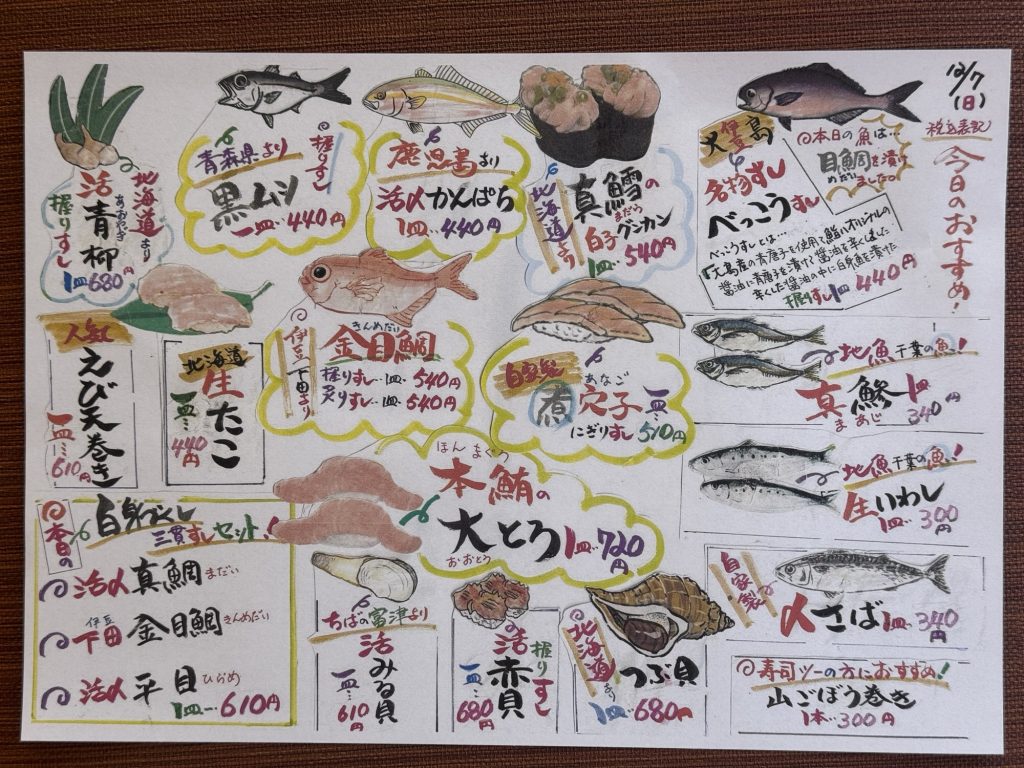 12/7
(日)
税込表記
今日のおすすめ!
伊豆
大島
名物すし
べっこうすし
本日の魚は…
目鯛を漬け
めだい
ました。
べっこうすしとは…
握りすし1皿 440円
北海道より
真鱈の
まだら
白子グンカン
540円
鹿児島より
活〆かんぱち
1皿…440円
青森県より
握りすし
黒ムツ
一皿…440円
北海道より
活青柳
あおやぎ
握りすし
1皿…680円
人気
えび天巻き
一皿…610円
北海道
生たこ
一皿…440円
きんめだい
金目鯛
伊豆下田より
握りすし…1皿…540円
炙りすし…1皿…540円
自家製
あなご
煮穴子
一皿…
にぎりすし 510円
地魚 千葉の魚!
真鯵
まあじ
1皿…340円
地魚 千葉の魚!
生いわし
1皿…300円
自家製
〆さば
1皿…340円
寿司ツーの方におすすめ!
山ごぼう巻き
1本…300円
ほんまぐろ
本鮪の
大とろ
おおとろ
1皿…720円
本日の
白身づくし
三貫すしセット!
活〆真鯛 まだい
伊豆
下田 金目鯛 きんめだい
活〆平目 ひらめ
1皿…610円
ちばの富津より
活みる貝
一皿…610円
握りすし
活赤貝
一皿…680円
北海道より
つぶ貝
1皿…680円